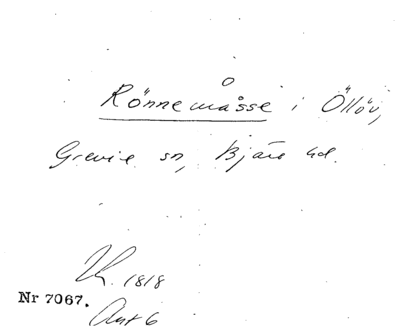 Rönnemåsse i Öllöv,
Grevie sn, Bjäre hd.
1818
Nr 7067.